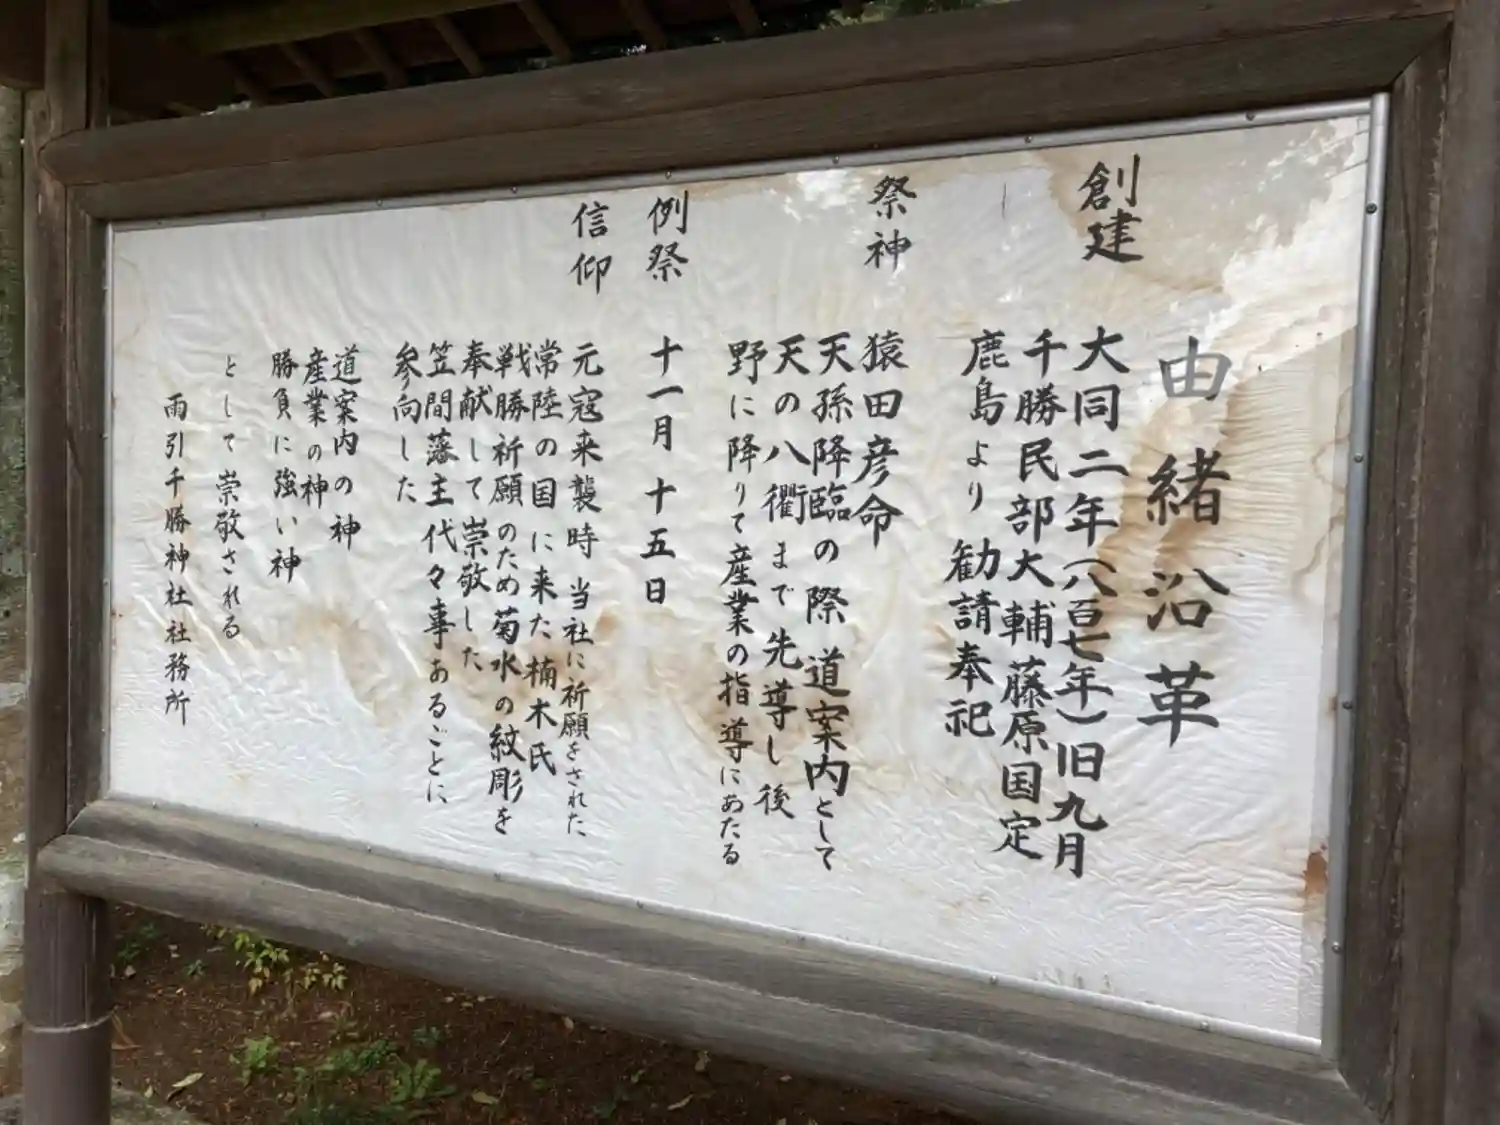 由緒沿革
創建
大同二年(八百七年)旧九月
千勝民部大輔藤原国定
鹿島より勧請奉祀
祭神
猿田彦命
天孫降臨の際道案内として
天の八衢まで先導し後
野に降りて産業の指導にあたる
例祭
十一月十五日
信仰
元寇来襲時当社に祈願をされた
常陸の国に来た楠木氏
戦勝祈願のため菊水の紋彫を
奉献して崇敬した
笠間藩主代々事あるごとに
参向した
道案内の神
産業の神
勝負に強い神
として崇敬される
雨引千勝神社社務所